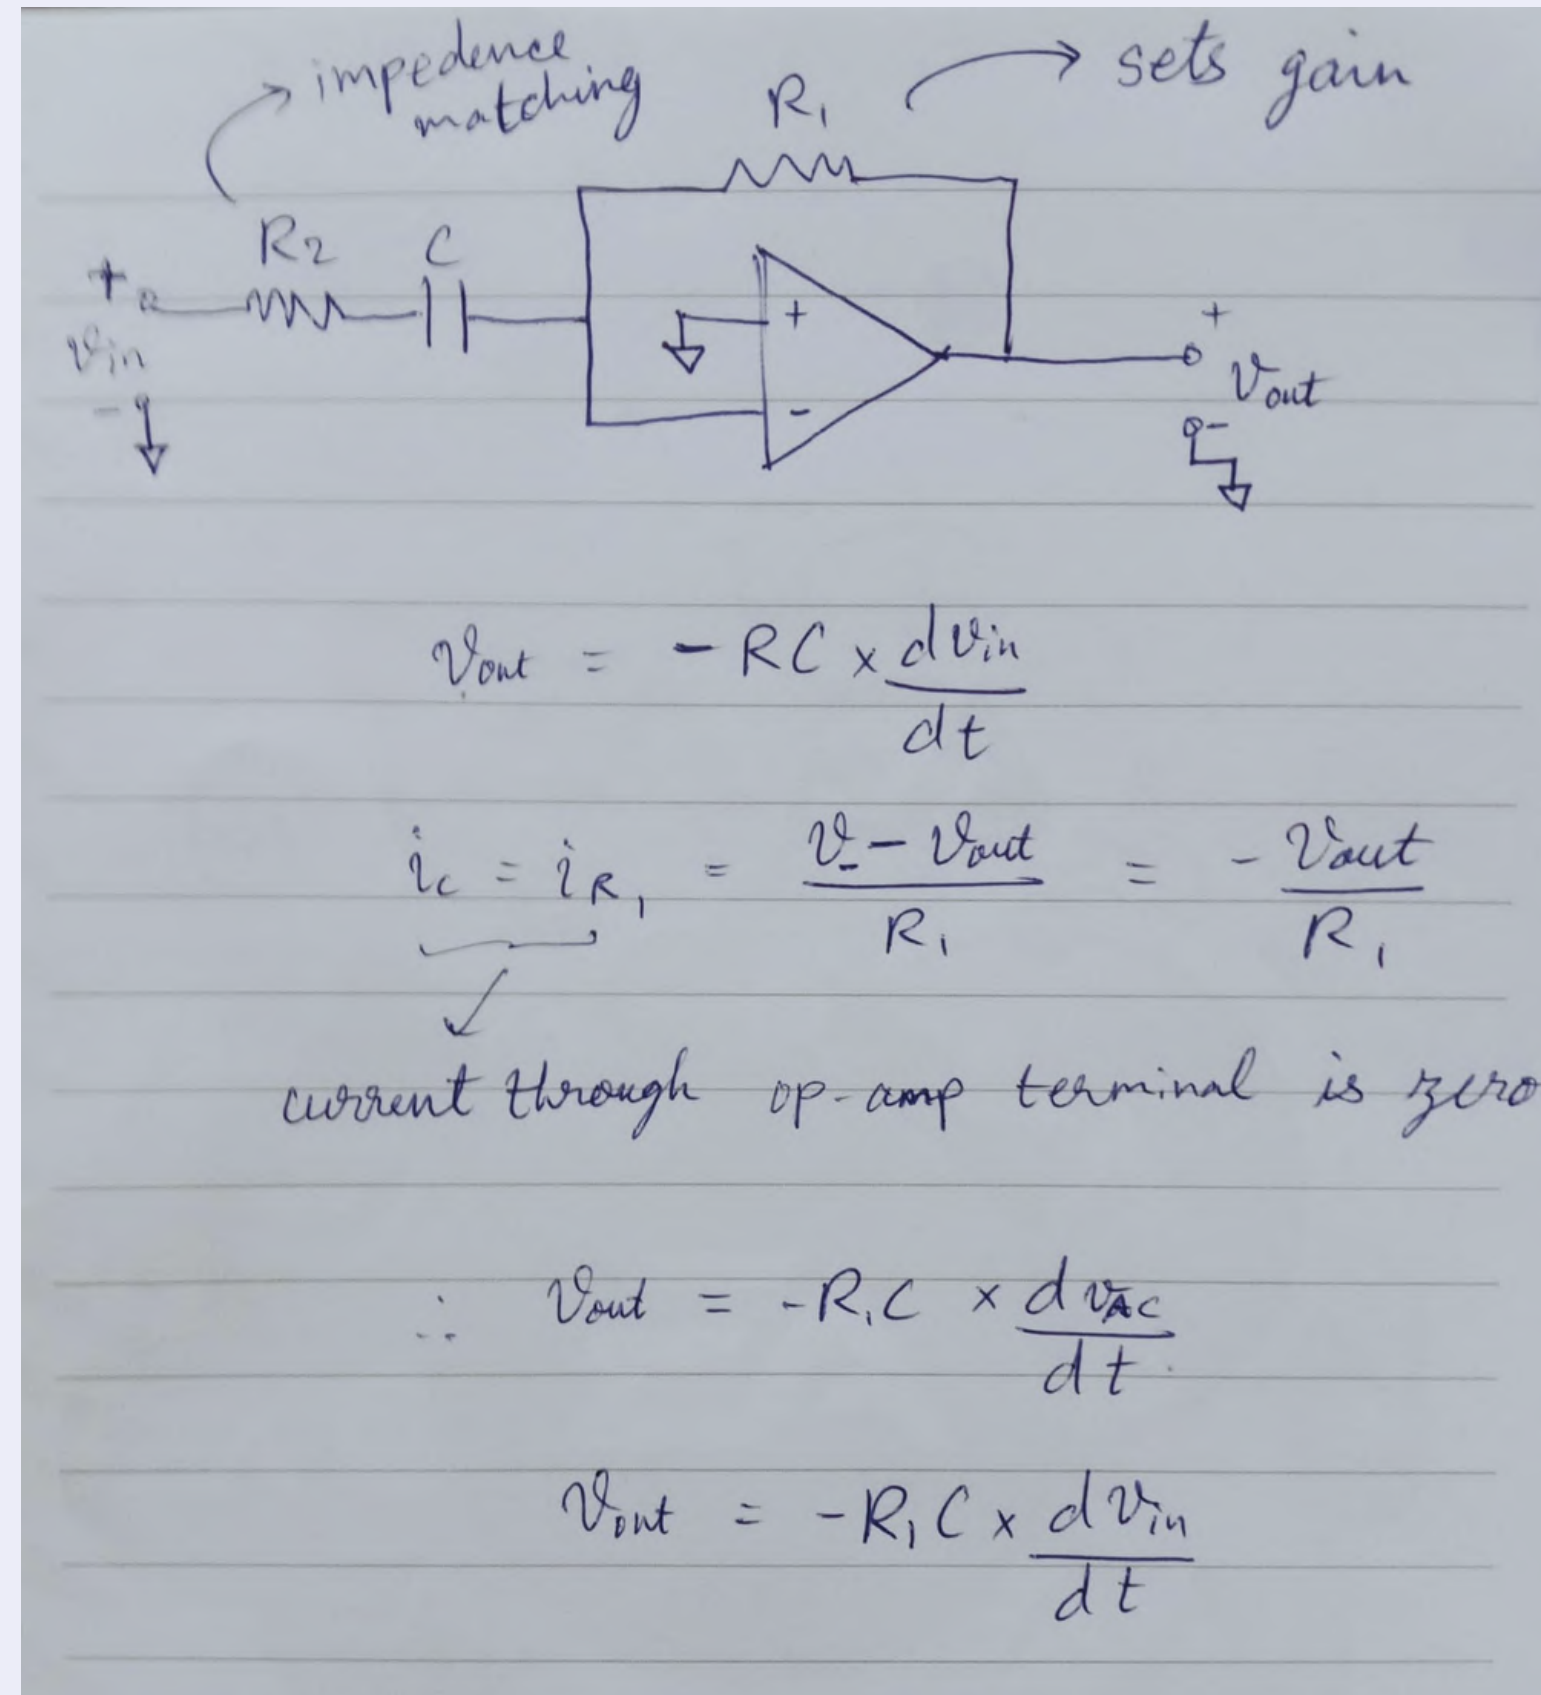 impedence
matching
sets gain
R₁
R2 C
+
vin
-
+
-
+
Vout
-
Vout = - RC × dvin/dt
ic = iR₁ = (v- - Vout)/R₁ = - Vout/R₁
current through op-amp terminal is zero
∴ Vout = -R₁C × dvAC/dt
Vout = -R₁C × dvin/dt